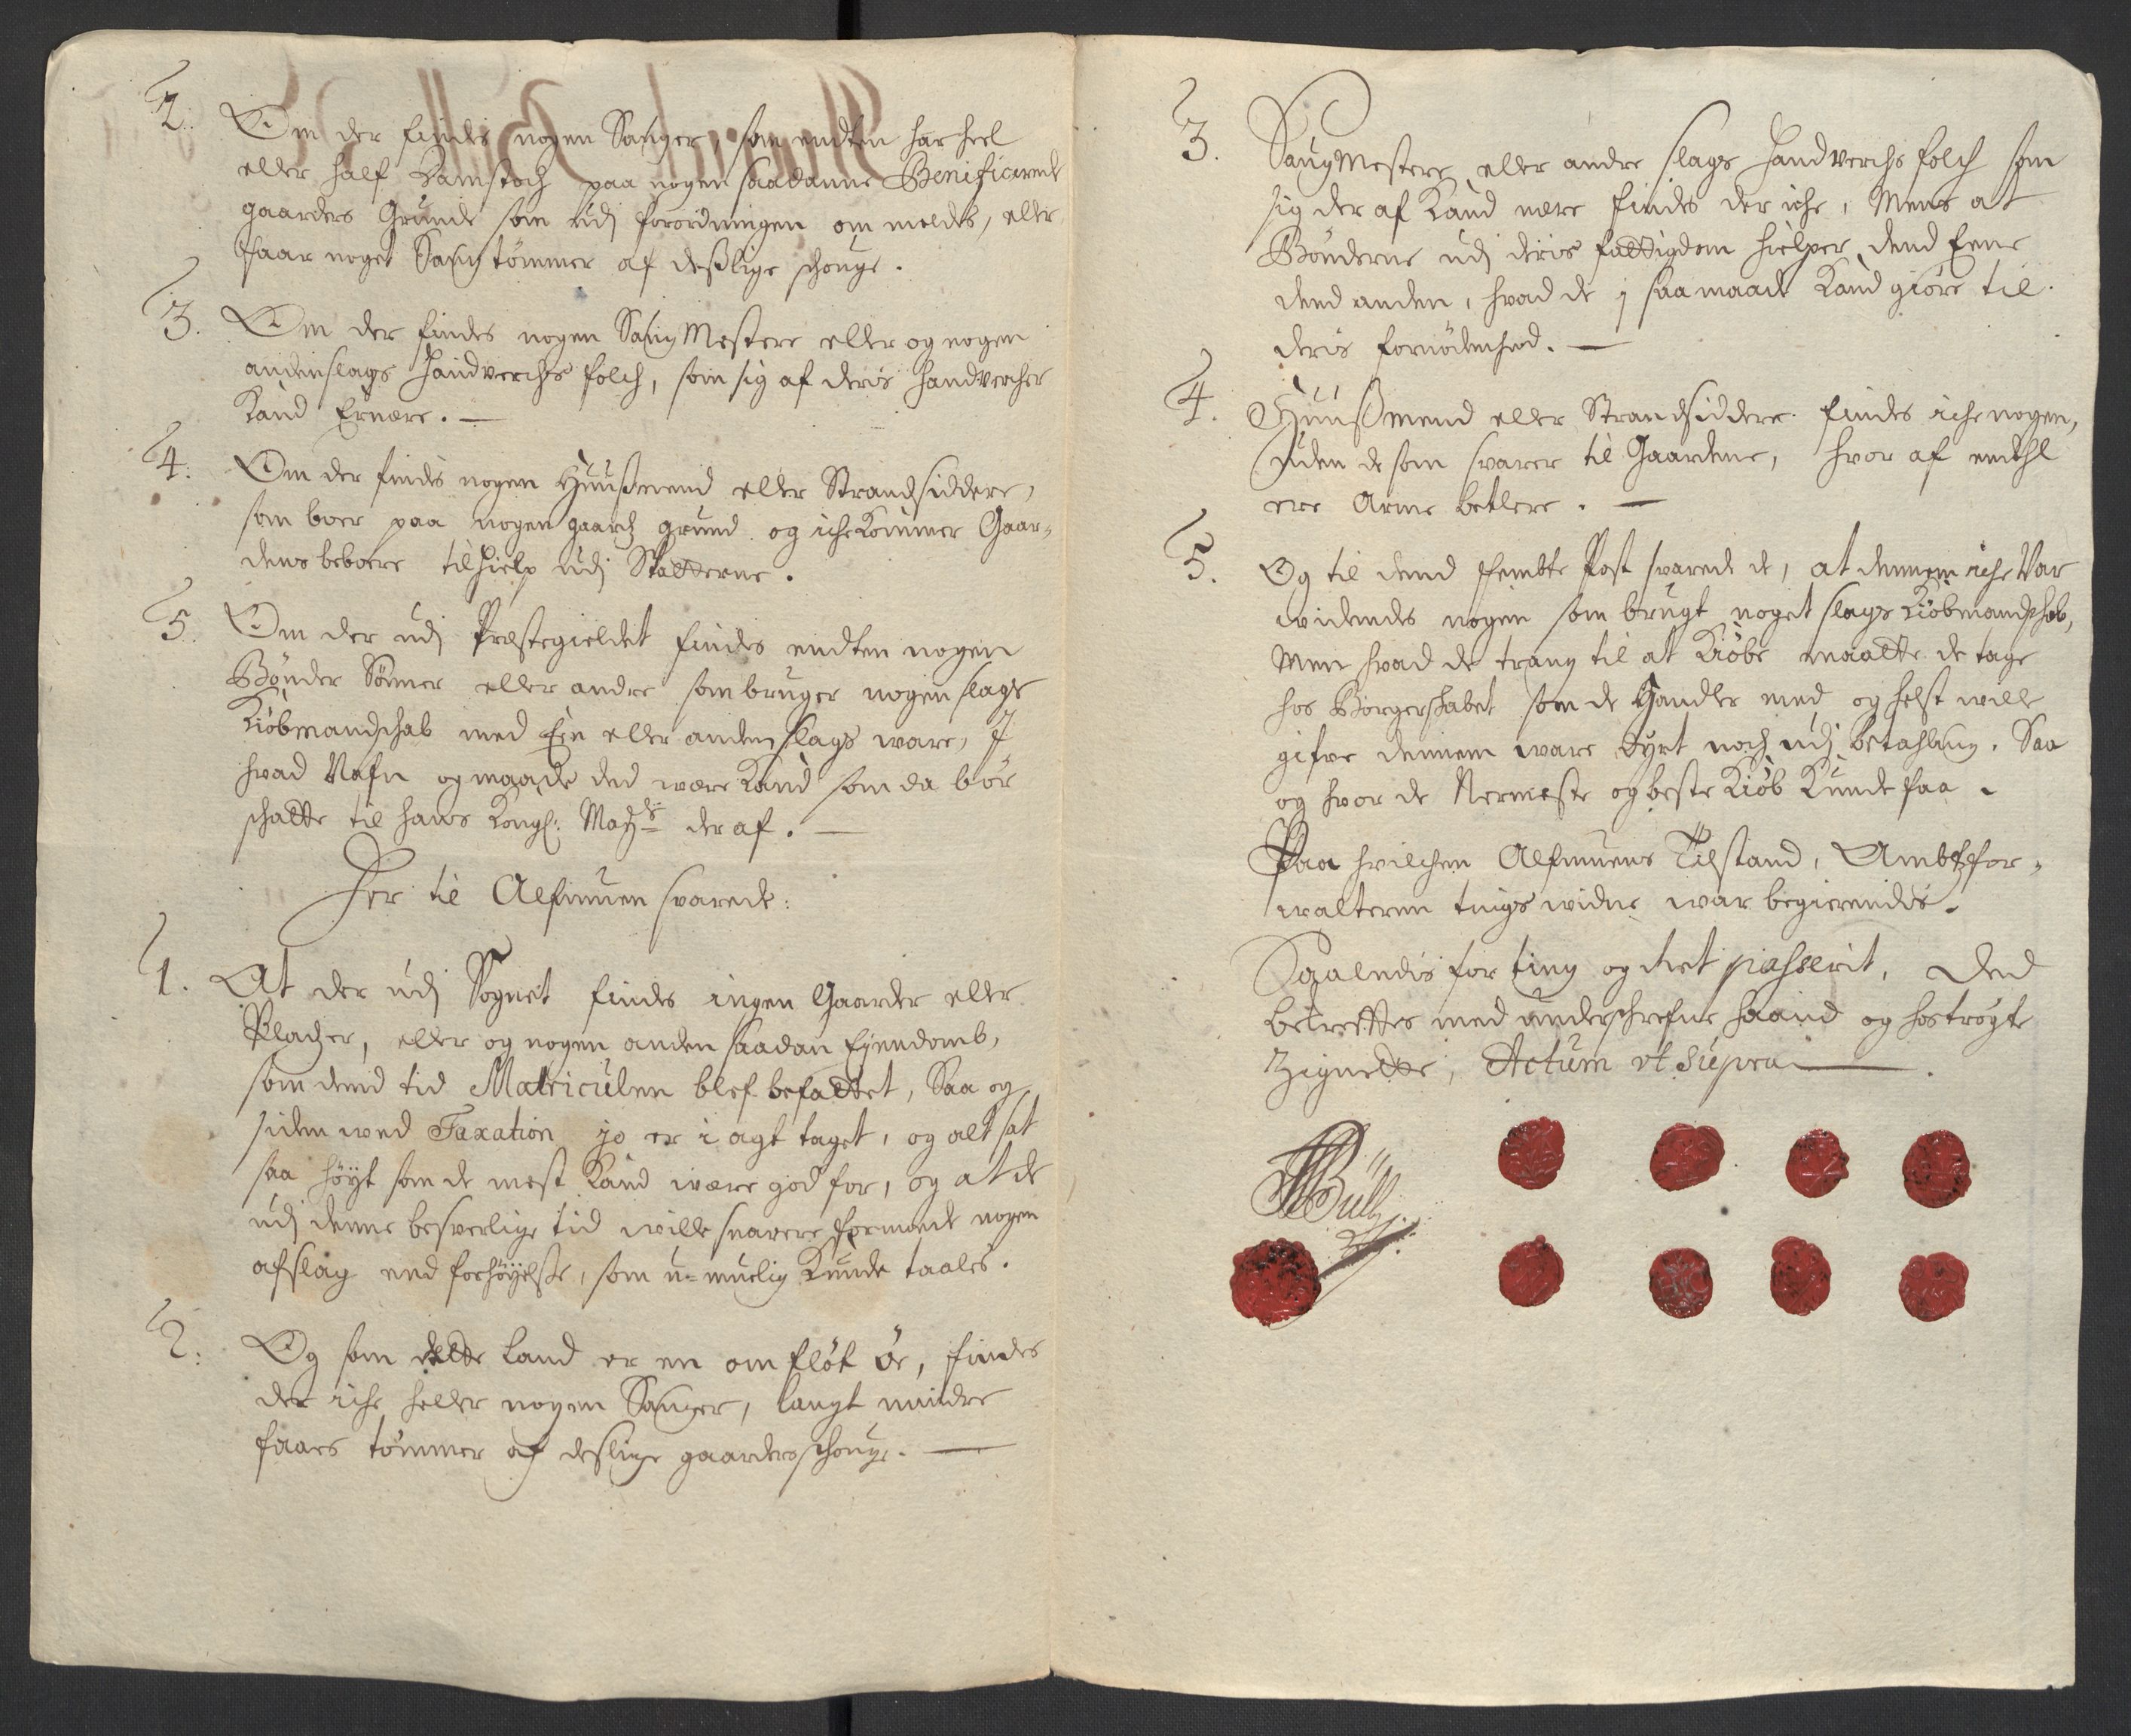 2. Om der findes nogen Sauger, som endten har heel
eller half Damstoch paa nogen saadanne Benificerede
gaarders Grunde som udj forordningen om meldes, eller
faar noget Saugtømmer af deßlige schouge.
3. Om der findes nogen SaugMestere eller og nogen
andenslags Handverchs folch, som sig af deris Handvercher
Kand Ernære. —
4. Om der findes nogen Huußmend eller Strandsiddere,
som boer paa nogen gaards grund og iche Kommer Gaar-
dens beboere til hielp udj Skatterne.
5. Om der udj Præstegieldet findes endten nogen
Bønder Sønner eller andre som bruger nogen slags
Kiøbmandschab med Een eller anden slags ware, J
hvad Nafn og maade ded være Kand som da bør
schatte til hans Kongl: May:ts der af. —
Her til Almuen svarede:
1. At der udj Sognet findes ingen Gaarder eller
Pladzer, eller og nogen anden saadan Eyendomb,
som dend tid Matriculen blef befattet, Saa og
siden ved Taxation jo er i agt taget, og alt sat
saa høyt som de mest Kand være god for, og at de
udj denne besverlige tid wille snarere formode nogen
afslag end forhøyelse, som u-muelig Kunde taales.
2. Og som dette Land er en omfløt Øe, findes
der iche heller nogen Sauger, langt mindre
faaes tømmer af deslige gaardersschouge. —
3. SaugMestere eller andre slags Handverchs folch som
sig der af Kand nære findes der iche, Mens at
Bønderne udj deris fattigdom hielper dend Eene
dend anden, hvad de j saa maade Kand giøre til
deris fornødenhed. —
4. Huußmend eller Strandsiddere findes iche nogen,
uden de som svarer til Gaardene, hvor af endehl
ere Arme betlere. —
5. Og til dend Fembte Post svarede de, at dennem iche Var
widendes nogen som brugt noget slags Kiøbmandschab,
Men hvad de trang til at Kiøbe maatte de tage
hos Borgerskabet som de Handler med og helst wille
gifve dennem ware dyrt noch udj betahling. Saa
og hvor de Nermeste og beste Kiøb Kunde faa.
Paa hvilchen Almuens Tilstand, Ambtsfor-
walteren tings widne war begierendes.
Saaledis for ting og Ret passerit, Ded
bekreftes med underschrefne haand og hostrøgte
Zignetter, Actum ut Supra —